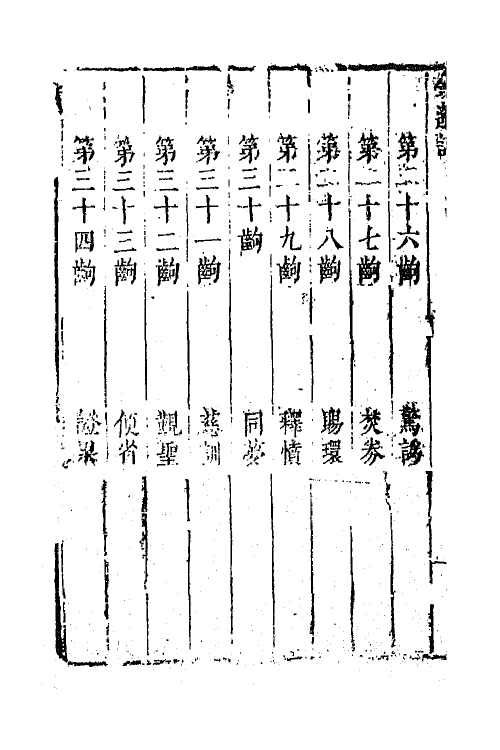 第二十六齣　驚謗
第二十七齣　焚券
第二十八齣　賜環
第二十九齣　釋憤
第三十齣　同
第三十一齣　慈訓
第三十二齣　觀聖
第三十三齣　偵省
第三十四齣　證果